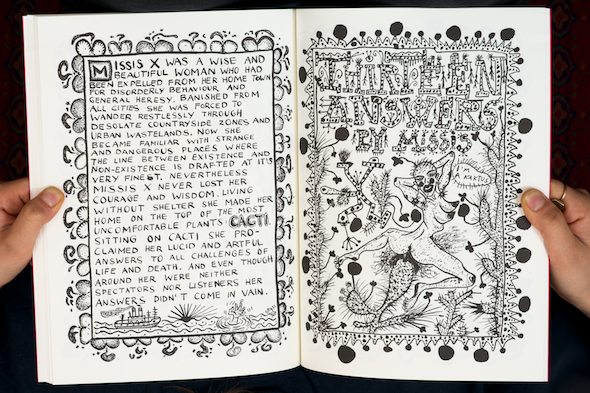 MISSIS X WAS A WISE AND
BEAUTIFUL WOMAN WHO HAD
BEEN EXPELLED FROM HER HOME TOWN
FOR DISORDERLY BEHAVIOUR AND
GENERAL HERESY. BANISHED FROM
ALL CITIES SHE WAS FORCED TO
WANDER RESTLESSLY THROUGH
DESOLATE COUNTRYSIDE ZONES AND
URBAN WASTELANDS. NOW SHE
BECAME FAMILIAR WITH STRANGE
AND DANGEROUS PLACES WHERE
THE LINE BETWEEN EXISTENCE AND
NON-EXISTENCE IS DRAFTED AT IT'S
VERY FINEST. NEVERTHELESS
MISSIS X NEVER LOST HER
COURAGE AND WISDOM. LIVING
WITHOUT SHELTER SHE MADE HER
HOME ON THE TOP OF THE MOST
UNCOMFORTABLE PLANTS CACTI
SITTING ON CACTI SHE PRO-
CLAIMED HER LUCID AND ARTFUL
ANSWERS TO ALL CHALLENGES OF
LIFE AND DEATH. AND EVEN THOUGH
AROUND HER WERE NEITHER
SPECTATORS NOR LISTENERS HER
ANSWERS DIDN'T COME IN VAIN.
THIRTEEN
ANSWERS
BY MISSIS
X
I'M
A